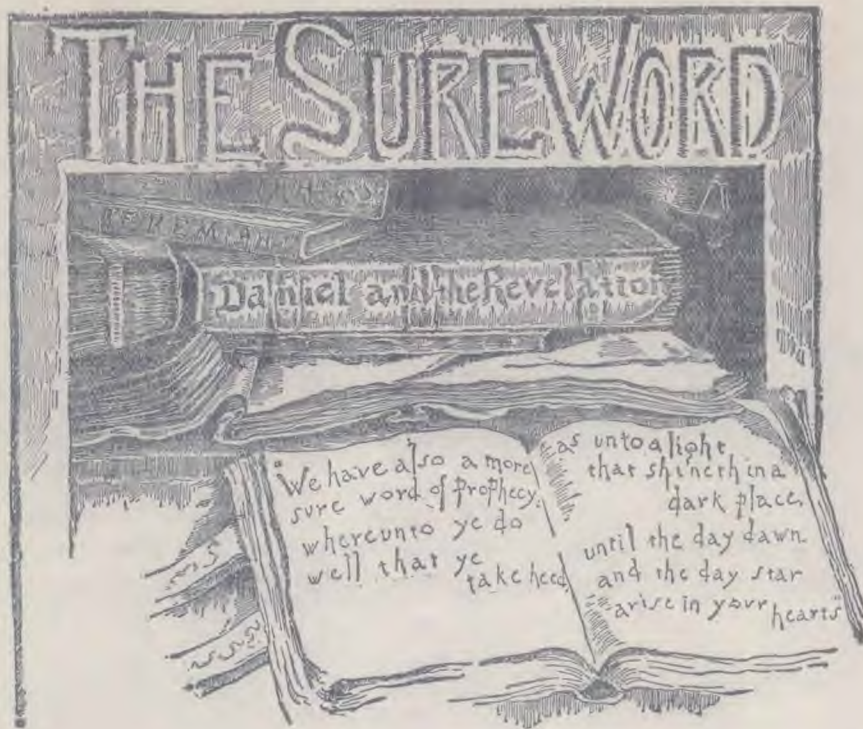 THE SURE WORD
JEREMIAH
Daniel and the Revelation
"We have also a more
sure word of Prophecy,
whereunto ye do
well that ye
take heed,
as unto a light
that shineth in a
dark place,
until the day dawn
and the day star
arise in your hearts"